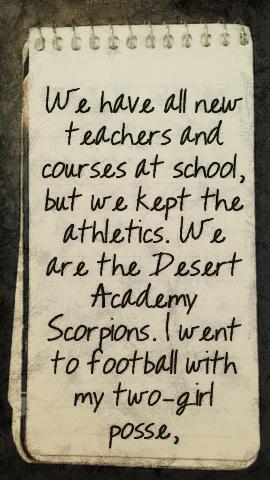 We have all new
teachers and
courses at school,
but we kept the
athletics. We
are the Desert
Academy
Scorpions. I went
to football with
my two-girl
posse,